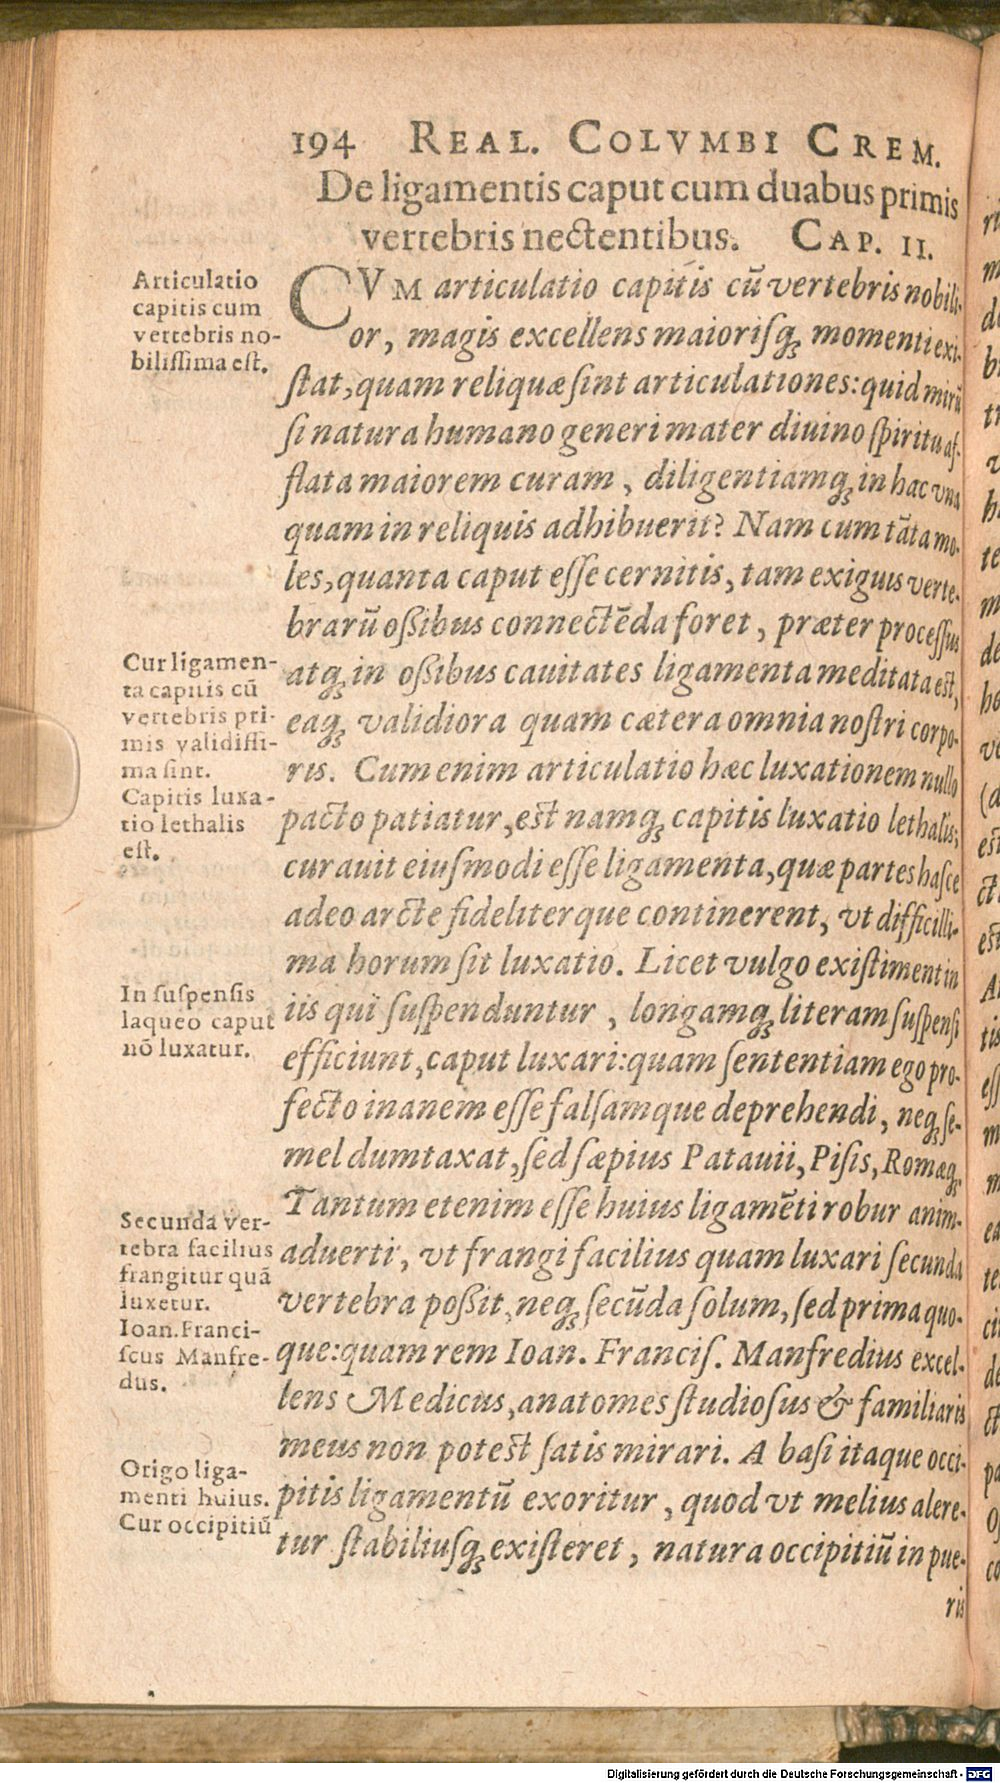 194 REAL. COLVMBI CREM.
De ligamentis caput cum duabus primis
vertebris nectentibus. CAP. II.
Articulatio
capitis cum
vertebris no-
bilissima est.
CVM articulatio capitis cũ vertebris nobili-
or, magis excellens maiorisq́; momenti exi-
stat, quam reliquæ sint articulationes: quid mirũ
si natura humano generi mater diuino spiritu af-
flata maiorem curam, diligentiamq́; in hac vna
quam in reliquis adhibuerit? Nam cum tãta mo-
les, quanta caput esse cernitis, tam exiguis verte-
brarũ oßibus connectẽda foret, præter processus
Cur ligamen-
ta capitis cũ
vertebris pri-
mis validissi-
ma sint.
Capitis luxa-
tio lethalis
est.
atq́; in oßibus cauitates ligamenta meditata est,
eaq́; validiora quam cætera omnia nostri corpo-
ris. Cum enim articulatio hæc luxationem nullo
pacto patiatur, est namq́; capitis luxatio lethalis;
curauit eiusmodi esse ligamenta, quæ partes hasce
adeo arcte fideliterque continerent, vt difficilli-
ma horum sit luxatio. Licet vulgo existiment in
In suspensis
laqueo caput
nõ luxatur.
iis qui suspenduntur, longamq́; literam suspensi
efficiunt, caput luxari: quam sententiam ego pro-
fecto inanem esse falsamque deprehendi, neq́; se-
mel dumtaxat, sed sæpius Patauii, Pisis, Romæq́;
Tantum etenim esse huius ligamẽti robur anim-
Secunda ver-
tebra facilius
frangitur quã
luxetur.
Ioan. Franci-
scus Manfre-
dus.
aduerti, vt frangi facilius quam luxari secunda
vertebra poßit, neq́; secũda solum, sed prima quo-
que: quam rem Ioan. Francis. Manfredius excel-
lens Medicus, anatomes studiosus & familiaris
meus non potest satis mirari. A basi itaque occi-
Origo liga-
menti huius.
Cur occipitiũ
pitis ligamentũ exoritur, quod vt melius alere-
tur stabiliusq́; existeret, natura occipitiũ in pue-
ris
Digitalisierung gefördert durch die Deutsche Forschungsgemeinschaft - DFG